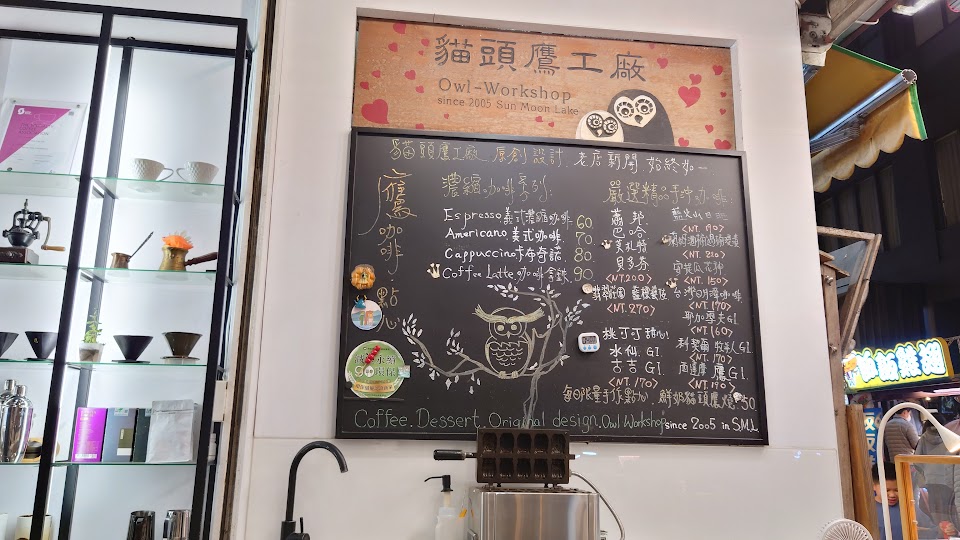 貓頭鷹工廠
Owl-Workshop
since 2005 Sun Moon Lake
貓頭鷹工廠 原創設計 老店新開 始終如一
鷹咖啡 點心
濃縮咖啡系列:
Espresso 義式濃縮咖啡 60.
Americano 美式咖啡. 70.
Cappuccino 卡布奇諾. 80.
Coffee Latte 咖啡拿鐵. 90.
嚴選精品手沖咖啡:
蕭邦.
巴哈
莫札特
貝多芬
<NT.200>
翡翠莊園
<NT.270>
桃丁丁 甜心!
水仙. G1
古吉. G1
<NT.170>
藍火山
<NT.90>
<NT.210>
<NT.150>
台灣日月潭咖啡
<NT.170>
耶加雪夫G1
<NT.160>
利契爾 牧羊人G1
<NT.170>
西達摩 鷹G1
<NT.190>
每日限量手作點心. 鮮奶貓頭鷹燒 $50
Coffee. Dessert. Original design. Owl Workshop since 2005 in S.M.L